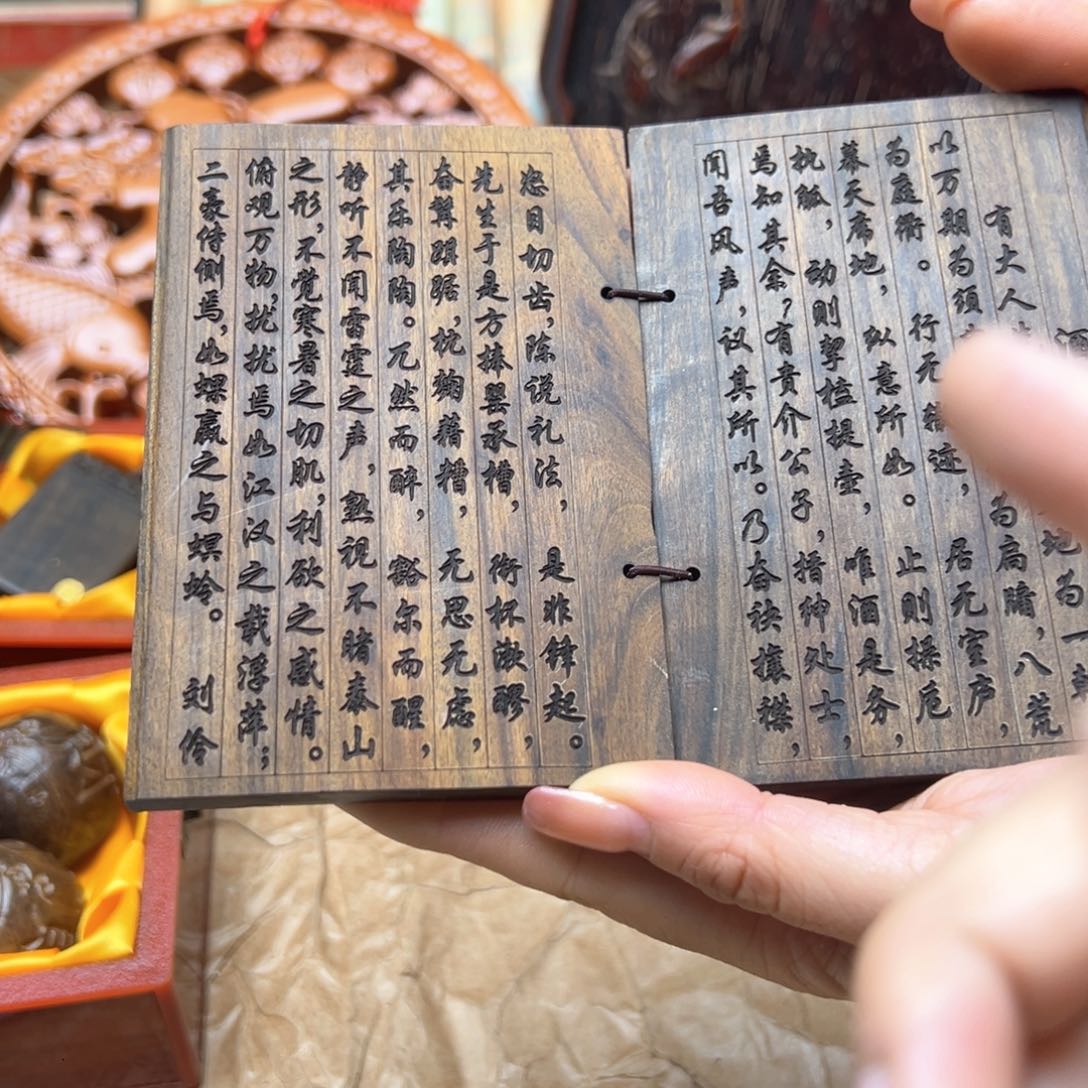 有大人地为一
以万期为须为扃牖,八荒
为庭衢。行无辙迹,居无室庐,
幕天席地,纵意所如。止则操卮
执觚,动则挈榼提壶,唯酒是务,
焉知其余?有贵介公子,搢绅处士,
闻吾风声,议其所以。乃奋袂攘襟,
怒目切齿,陈说礼法,是非锋起。
先生于是方捧罂承槽,衔杯漱醪,
奋髯踑踞,枕麹藉糟,无思无虑,
其乐陶陶。兀然而醉,豁尔而醒,
静听不闻雷霆之声,熟视不睹泰山
之形,不觉寒暑之切肌,利欲之感情。
俯观万物,扰扰焉如江汉之载浮萍;
二豪侍侧焉,如蜾赢之与螟蛉。刘伶